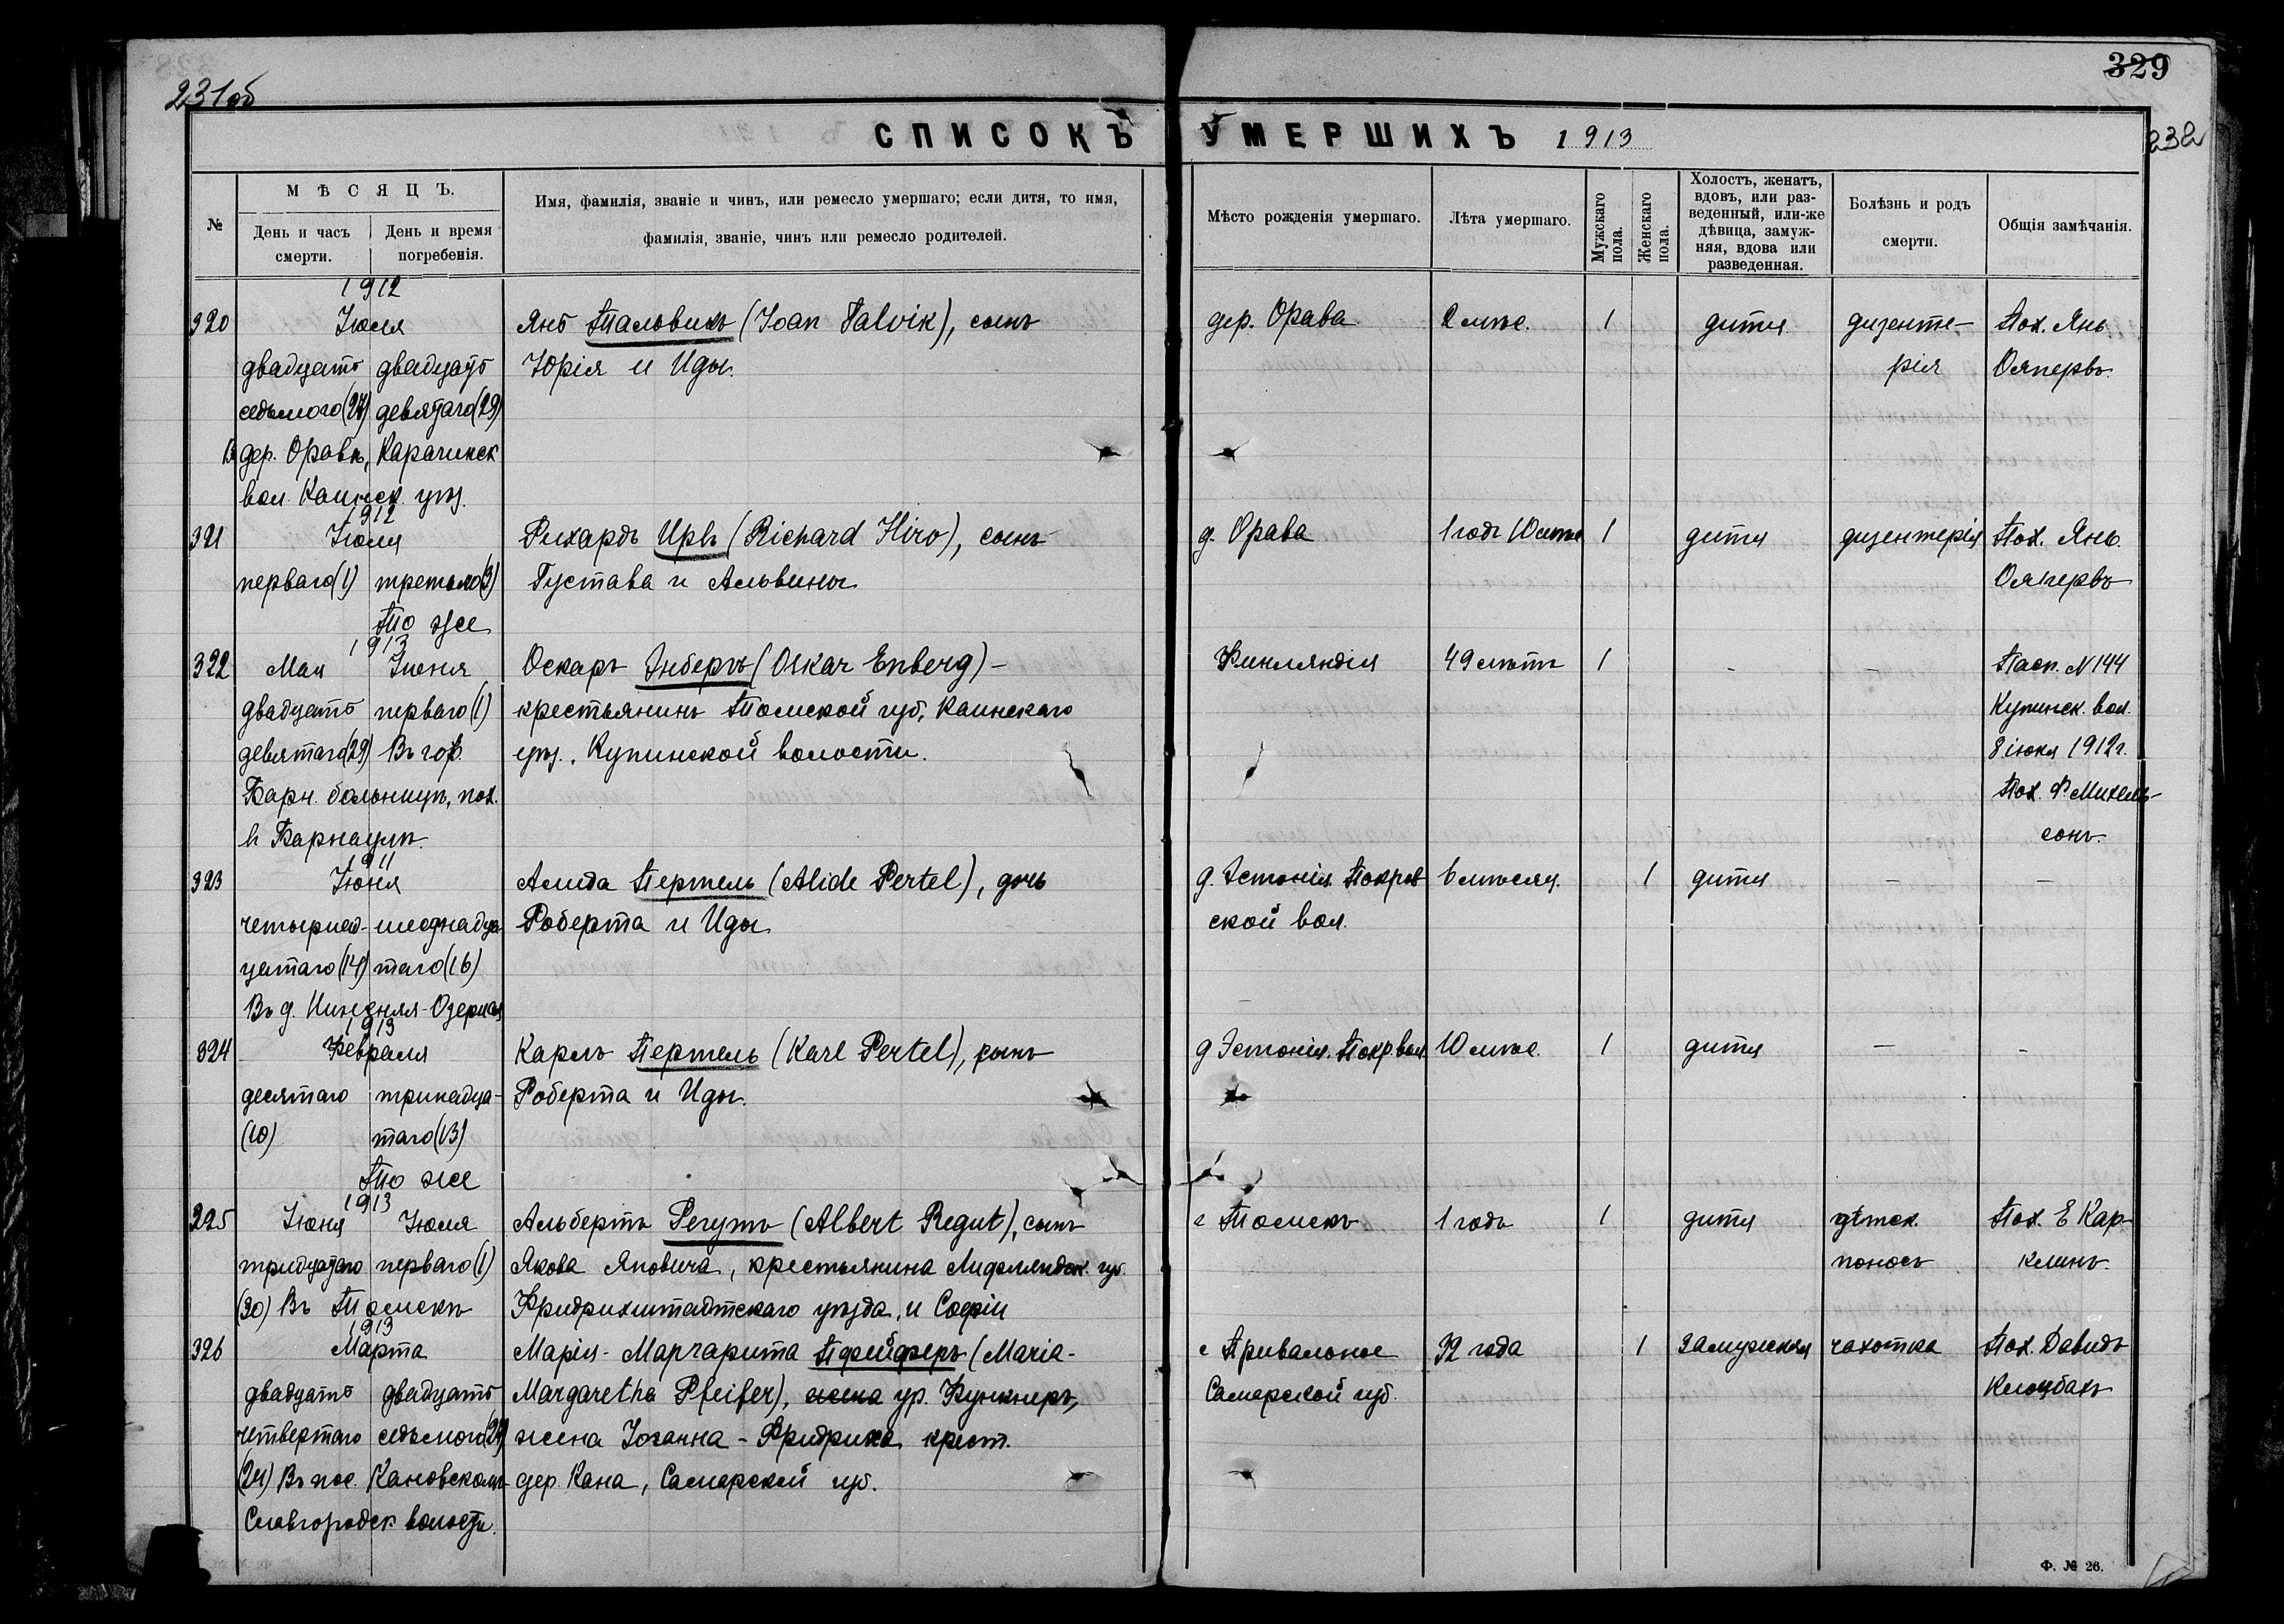 329
231об
СПИСОКЪ УМЕРШИХЪ 1913
232
№
МѢСЯЦЪ.
День и часъ смерти.
День и время погребенія.
Имя, фамилія, званіе и чинъ, или ремесло умершаго; если дитя, то имя,
фамилія, званіе, чинъ или ремесло родителей.
Мѣсто рожденія умершаго.
Лѣта умершаго.
Мужскаго пола.
Женскаго пола.
Холостъ, женатъ,
вдовъ, или раз-
веденный, или-же
дѣвица, замуж-
няя, вдова или
разведенная.
Болѣзнь и родъ
смерти.
Общія замѣчанія.
1912
320 Іюля Янъ Тальвикъ (Joan Talvik), сынъ дер. Орава 2 мѣс. 1 дитя дизенте- Пох. Янъ
двадцать двадцать Юрія и Иды. рія Ояпервъ.
седьмого (27) девятаго (29)
В дер. Оравѣ, Карачинск
вол. Каинск. уѣз.
1912
321 Іюля Рихардъ Ирвъ (Richard Hirv), сынъ д. Орава 1 годъ 10 мѣс 1 дитя дизентерія Пох. Янъ.
перваго (1) третьяго (3) Густава и Альвины Ояпервъ
То же
1913
322 Мая Іюня Оскаръ Энбергъ (Oskar Enberg) - Финляндія 49 лѣтъ 1 - - Пасп. N 144
двадцать перваго (1) крестьянинъ Томской губ, Каинскаго Купинск. вол.
девятаго (29) Въ гор. уѣз., Купинской волости. 8 іюня 1912 г.
Барн. больницѣ, пох. Пох. Ф. Михель-
в Барнаулѣ. сонъ.
1911
323 Іюня Алида Пертель (Alide Pertel), дочь д. Эстонія. Покров 6 мѣсяц. 1 дитя - -
четырнад- шестнадца Роберта и Иды. ской вол.
цатаго (14) таго (16)
Въ д. Нижняя-Озерная
1913
324 Февраля Карлъ Пертель (Karl Pertel), сынъ д Эстонія. Покр вол 10 мѣс. 1 дитя - -
десятаго тринадца- Роберта и Иды.
(10) таго (13)
То же
1913
325 Іюня Іюля Альбертъ Регутъ (Albert Regut), сынъ г Томскъ 1 годъ 1 дитя дѣтск. Пох. Е Кар-
тридцатаго перваго (1) Якова Яновича, крестьянина Лифляндск. губ. поносъ клинъ.
(30) Въ Томскѣ Фридрихштадтскаго уѣзда, и Софіи
1913
326 Марта Марія-Маргарита Пфейферъ (Maria- с Привальное 32 года 1 замужняя чахотка Пох. Давидъ
двадцать двадцать Margaretha Pfeifer), жена ур. Кункнеръ, Самарской губ.
четвертаго седьмого (27) жена Іоганна-Фридриха крест.
(24) Въ пос. Кановскомъ дер. Кана, Самарской губ.
Славгородск волости.
Ф. № 26.